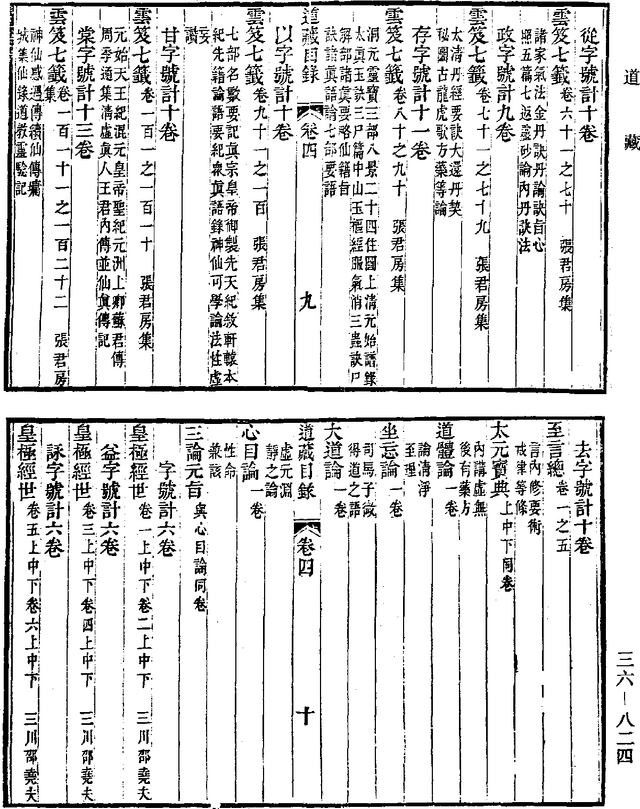 道藏
從字號計十卷
雲笈七籤卷六十一之七十　張君房集
諸家氣法金丹訣丹論訣旨心
照五篇七返靈砂論內丹訣法
政字號計九卷
雲笈七籤卷七十一之七十九　張君房集
太清丹經要訣大還丹契
秘圖古龍虎歌方藥等論
存字號計十一卷
雲笈七籤卷八十之九十　張君房集
洞元靈寶三部八景二十四住圖上清元始譜錄
太真玉訣三尸篇中山玉櫃經服氣消三蟲訣尸
解部諸真要略仙籍旨
訣諸真語論七部要語
道藏目錄　卷四　九
以字號計十卷
雲笈七籤卷九十一之一百　張君房集
七部名數要記真宗皇帝御製先天紀敘軒轅本
紀先籍論語要紀衆真語錄神仙可學論法性虛
妄
讚
甘字號計十卷
雲笈七籤卷一百一之一百一十　張君房集
元始天王紀混元皇帝聖紀元洲上卿蘇君傳
周季通集清虛真人王君內傳並仙真傳記
棠字號計十三卷
雲笈七籤卷一百一十一之一百二十二　張君房
集
神仙感遇傳續仙傳墉
城集仙錄道教靈驗記
去字號計十卷
至言總卷一之五
言內修要術
戒律等條
太元寶典上中下同卷
內講虛無
後有藥方
道體論一卷
論清淨
至理
坐忘論一卷
司馬子微
得道之語
大道論一卷
道藏目錄　卷四　十
虛元淵
靜之論
心目論一卷
性命
兼該
三論元旨與心目論同卷
字號計六卷
皇極經世卷一上中下卷二上中下　三川邵堯夫
益字號計六卷
皇極經世卷三上中下卷四上中下　三川邵堯夫
詠字號計六卷
皇極經世卷五上中下卷六上中下　三川邵堯夫
三六－八二四